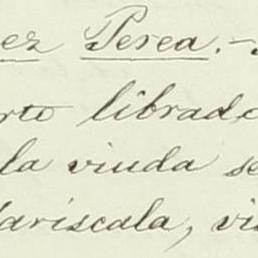 ez Perea.-
rto librado
la viuda se
ariscala, vi